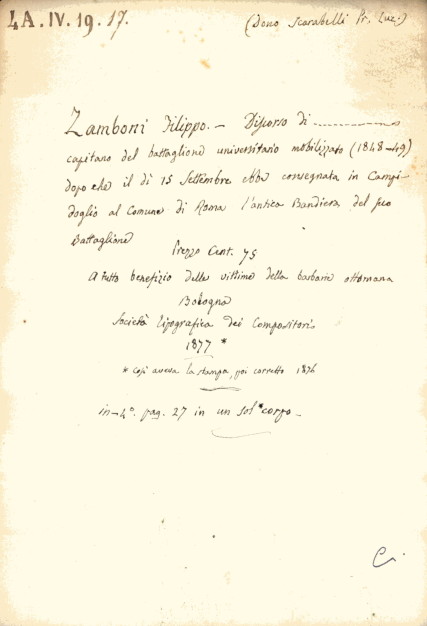 4A.IV.19.17.
(Dono Scarabelli Pr. Luigi)
Zamboni Filippo. — Discorso di
capitano del battaglione universitario mobilizzato (1848-49)
dopo che il dì 15 Settembre ebbe consegnata in Campi-
doglio al Comune di Roma l'antica Bandiera del suo
Battaglione
Prezzo Cent. 75
A tutto benefizio delle vittime della barbarie ottomana
Bologna
Società tipografica dei Compositori
1877 *
* Così aveva la stampa, poi corretto 1876
in-4°. pag. 27 in un sol corpo —